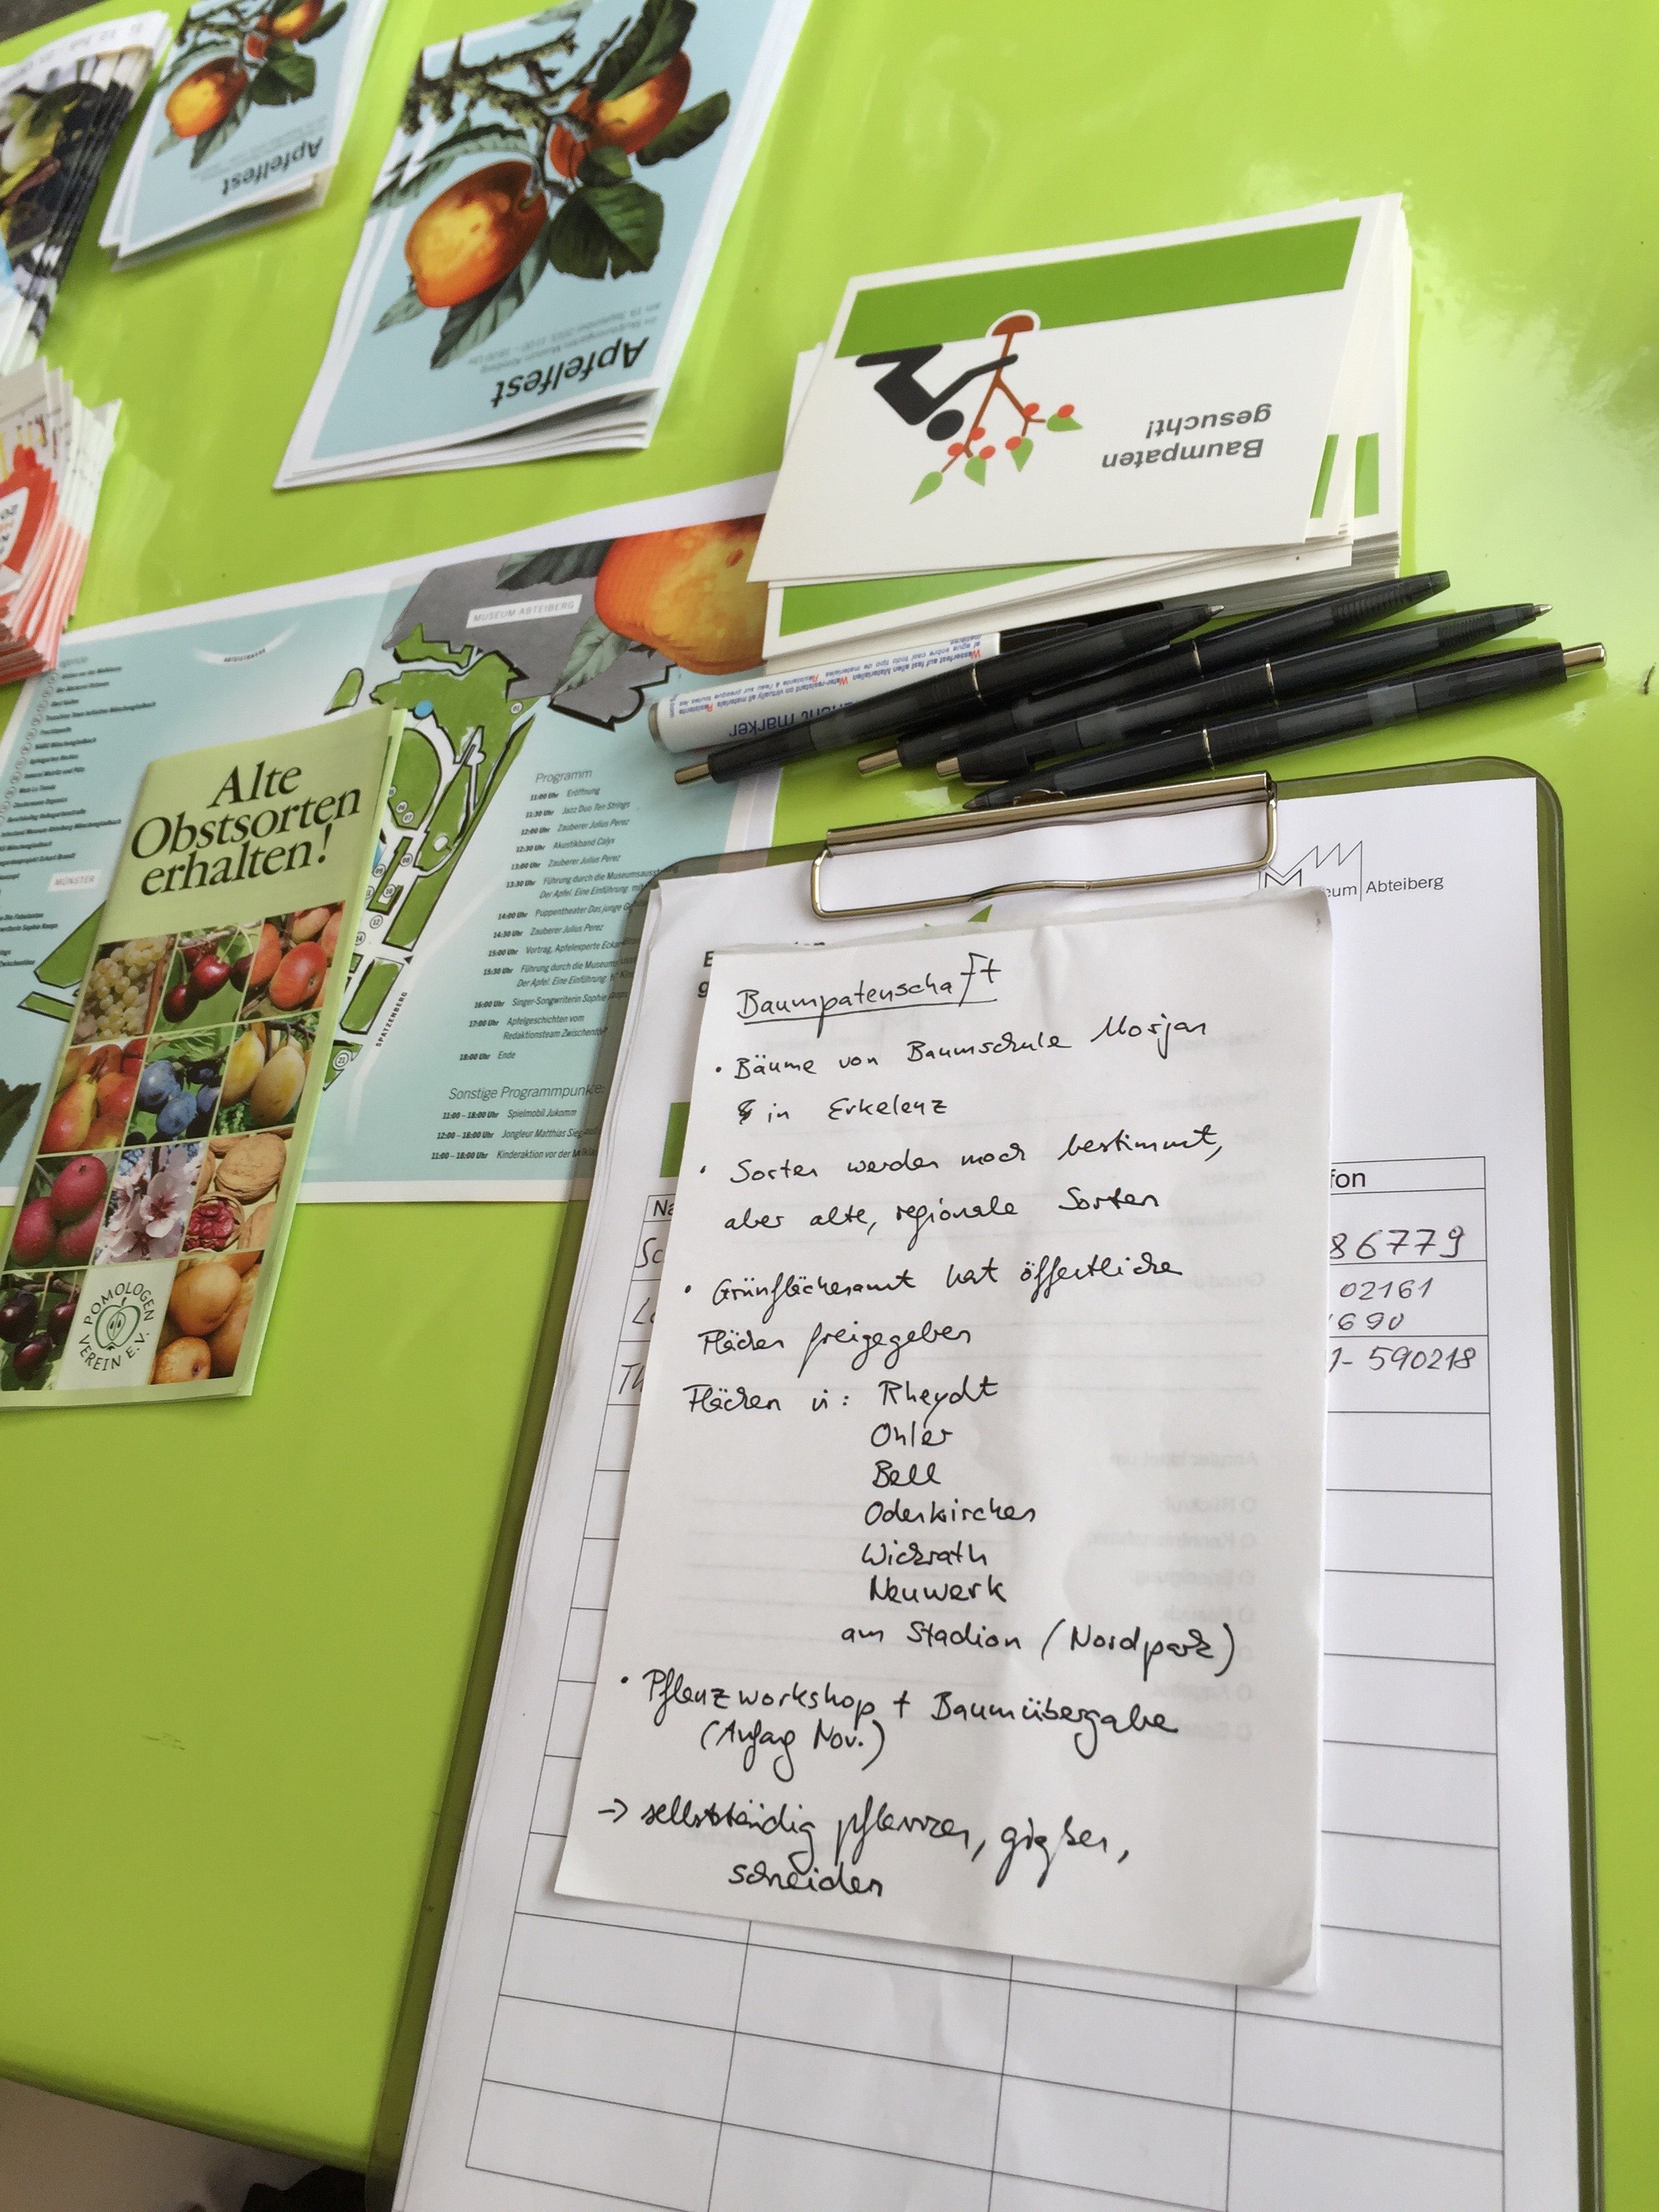 Apfelfest
Apfelfest
im Skulpturengarten Museum Abteiberg
am 19. September 2015, 11:00 – 18:00 Uhr
Baumpaten
gesucht!
MUSEUM ABTEIBERG
ABTEISTRASSE
marker
Wasserfest auf fast allen Materialien
Water-resistant on virtually all materials
Alte
Obstsorten
erhalten!
POMOLOGEN
VEREIN E.V.
MÜNSTER
SPATZENBERG
Programm
11:00 Uhr Eröffnung
11:30 Uhr Jazz Duo Ten Strings
12:00 Uhr Zauberer Julius Perez
12:30 Uhr Akustikband Calyx
13:00 Uhr Zauberer Julius Perez
13:30 Uhr Führung durch die Museumsauss
Der Apfel. Eine Einführung mit
14:00 Uhr Puppentheater Das junge G
14:30 Uhr Zauberer Julius Perez
15:00 Uhr Vortrag, Apfelexperte Eckar
15:30 Uhr Führung durch die Museum
Der Apfel. Eine Einführung
16:00 Uhr Singer-Songwriterin Sophie
17:00 Uhr Apfelgeschichten vom
Redaktionsteam Zwischen
18:00 Uhr Ende
Sonstige Programmpunkte:
11:00 – 18:00 Uhr Spielmobil Jukomm
12:00 – 18:00 Uhr Jongleur Matthias
11:00 – 18:00 Uhr Kinderaktion vor der
eum Abteiberg
Baumpatenschaft
• Bäume von Baumschule Morjan
in Erkelenz
• Sorten werden noch bestimmt,
aber alte, regionale Sorten
• Grünflächenamt hat öffentliche
Flächen freigegeben
Flächen in: Rheydt
Ohler
Bell
Odenkirchen
Wickrath
Neuwerk
am Stadion (Nordpark)
• Pflanzworkshop + Baumübergabe
(Anfang Nov.)
→ selbstständig pflanzen, gießen,
schneiden
Na
fon
86779
02161
690
1- 590218